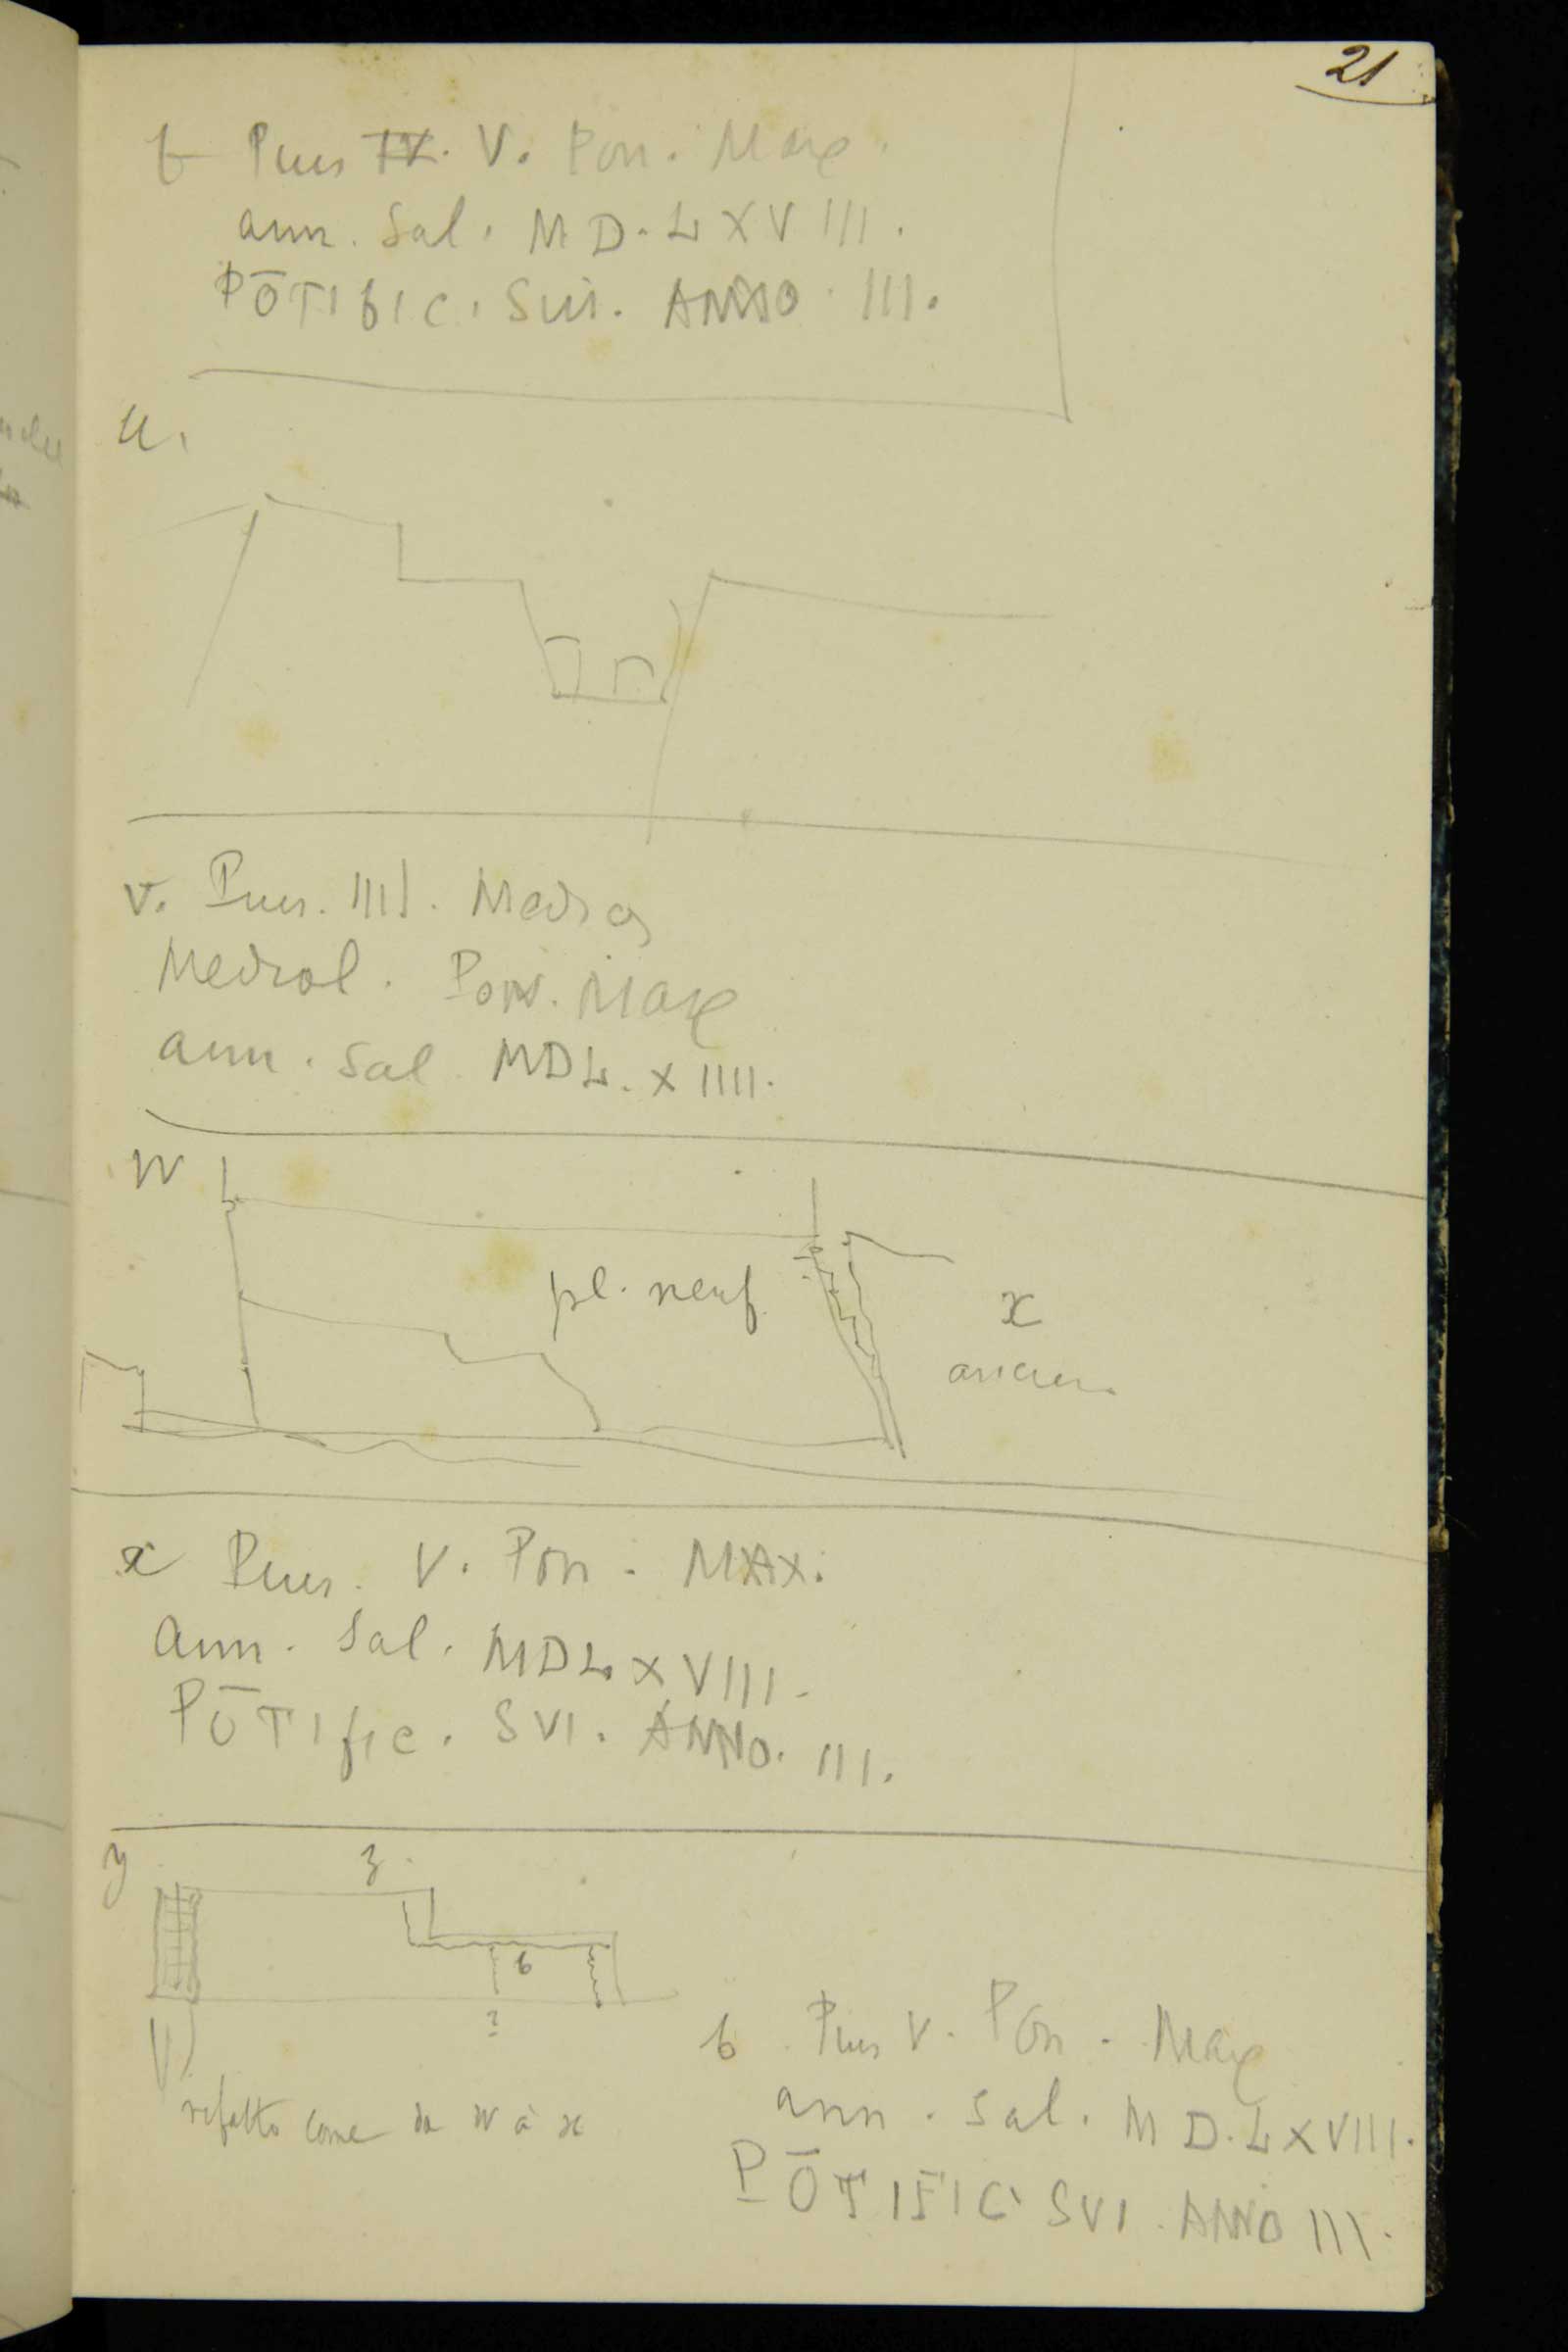 21
t Pius IV. V. Pon. Max.
ann. Sal. M D. L X V III.
PŌTIfIC. Sui. ANNO III.
u.
v. Pius. IIII. Medices
Mediol. Pon. Max
ann. Sal MDL. X IIII.
w
pl. neuf
x
ancien.
x Pius. V. Pon. MAX.
ann. Sal. MDLXVIII.
PŌTIfic. SVI. ANNO. III.
y z
b
?
refatto come da w à x
b Pius V. Pon. Max
ann. Sal. M D. L X V III.
PŌTIFIC SVI ANNO III.